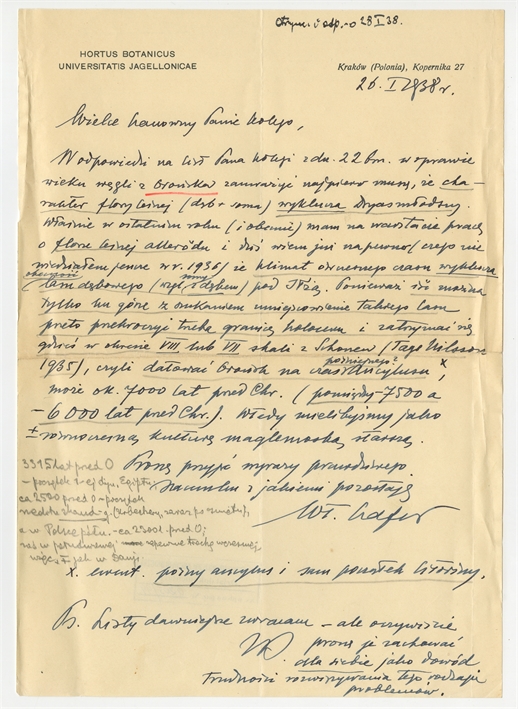 Otrzym. i odp. 28 I 38.
HORTUS BOTANICUS
UNIVERSITATIS JAGELLONICAE
Kraków (Polonia), Kopernika 27
26. I 1938 r.
Wielce Szanowny Panie Kolego,
W odpowiedzi na list Pana Kolegi z dn. 22 bm. w sprawie
wieku węgli z Orońska zauważyć najpierw muszę, że cha-
rakter flory leśnej (dąb + sosna) wyklucza Dryas młodszy.
Właśnie w ostatnim roku (i obecnie) mam na warsztacie pracę
o florze leśnej allerödu i dziś wiem już na pewno (czego nie
wiedziałem jeszcze w r. 1936) że klimat ówczesnego czasu wyklucza
obecność lasu dębowego (wzgl. sosny z dębem) pod Nią. Ponieważ iść można
tylko ku górze z szukaniem umiejscowienia takiego lasu
przeto przekroczyć trzeba granicę holocenu i zatrzymać się
gdzieś w okresie VIII lub VII skali z Schonen (Tage Nilsson
1935), czyli datować Orońsk na czas Ancylusu, x
późniejszego?
może ok. 7000 lat przed Chr. (pomiędzy -7500 a
- 6000 lat przed Chr.). Wtedy mielibyśmy jako
± równoczesną kulturę maglemoską starszą.
Proszę przyjąć wyrazy prawdziwego
szacunku z jakiemi pozostaję
Wł. Szafer
3315 lat przed O
- początek 1-ej dyn. Egiptu,
ca 2500 przed O - początek
a w Polsce - ca 2300 l. przed O;
więc ± jak w Danji.
x. ewent. późny ancylus i sam początek Litoriny.
Ps. Listy dawniejsze zwracam - ale oczywiście
proszę je zachować
dla siebie jako dowód
trudności rozwiązywania tego rodzaju
problemów.